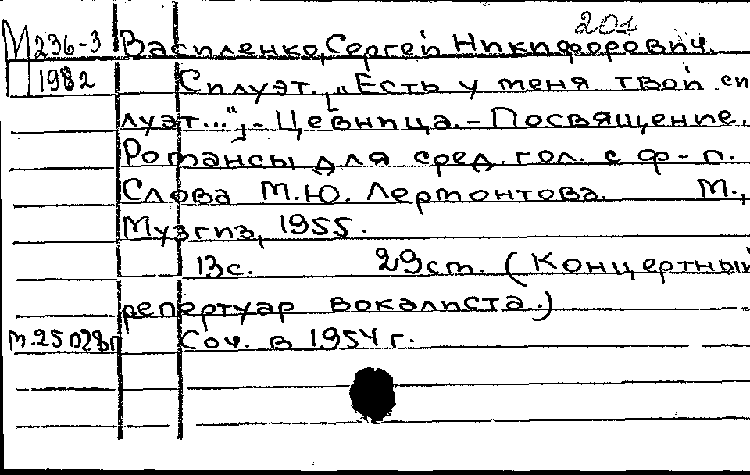 201
М 236-3 Василенко, Сергей Никифорович.
1982 Силуэт. ["Есть у меня твой си
луэт..."]. - Цевница. - Посвящение.
Романсы для сред. гол. с ф-п.
Слова М.Ю. Лермонтова. М.,
Музгиз, 1955.
13с. 29ст. (Концертный
репертуар вокалиста.)
М.25028п Соч. в 1954 г.